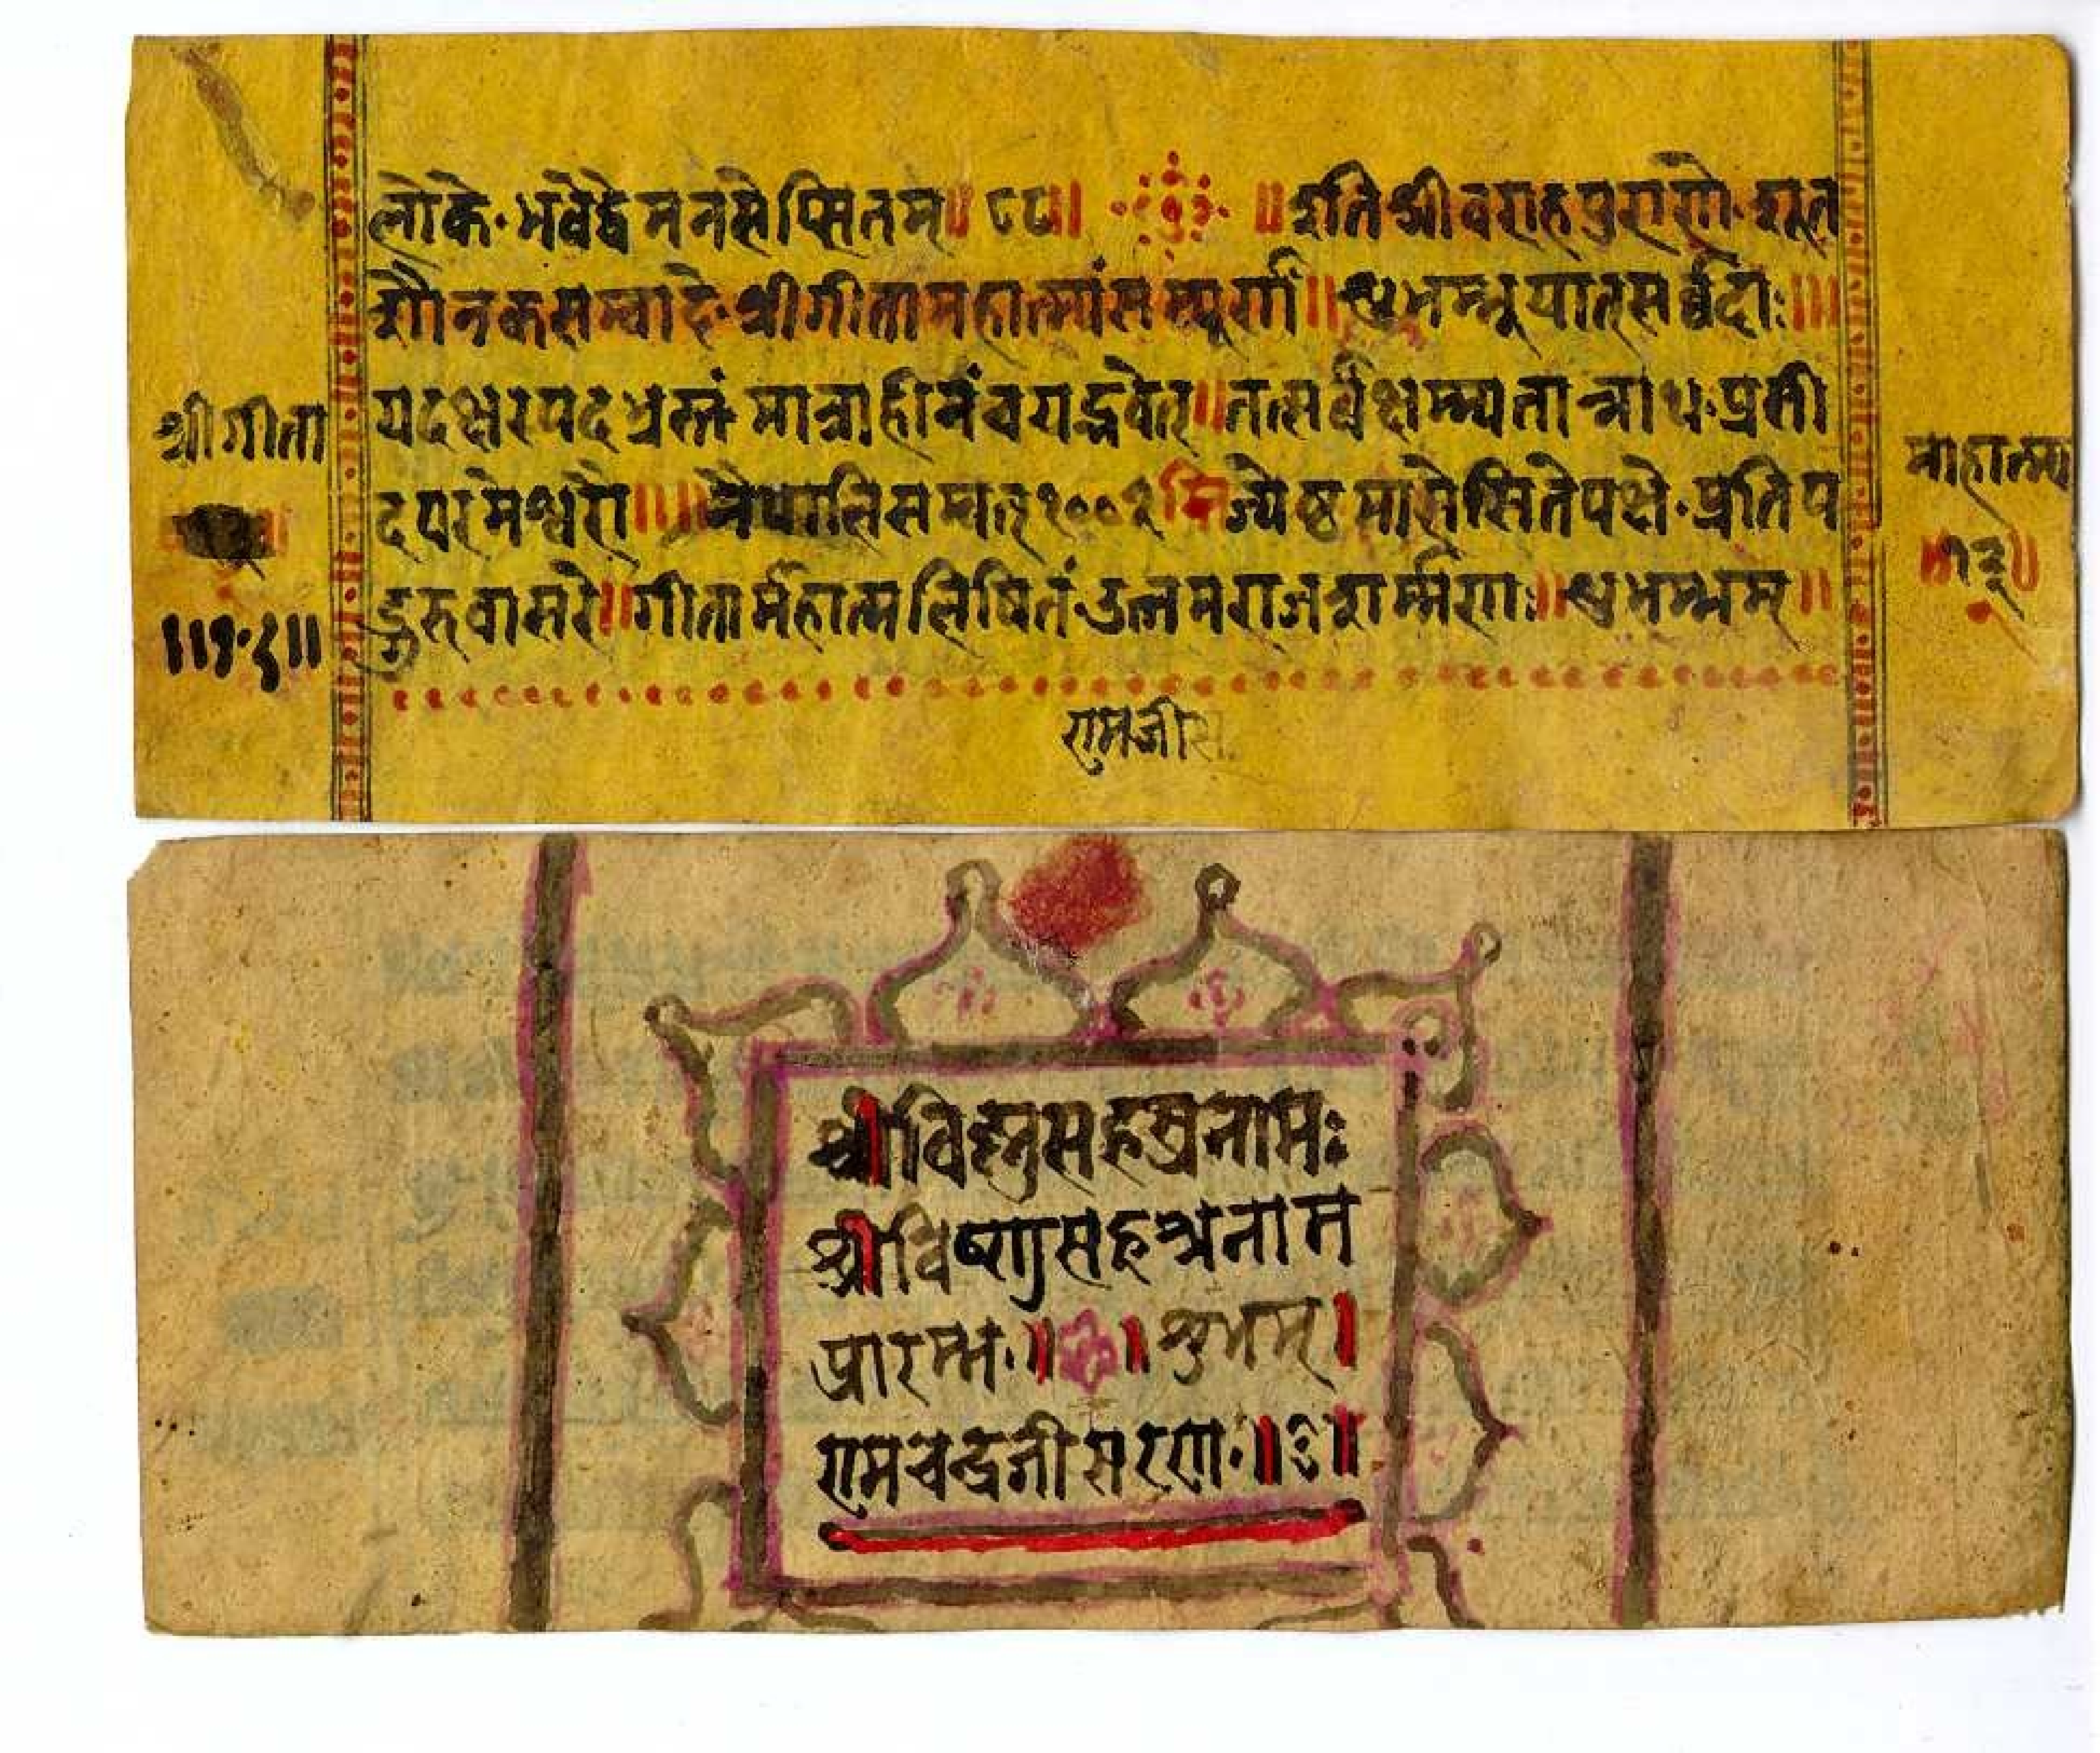 लोके भवेद्वै मनसेप्सितम्॥ ८८॥ ॥इति श्री वराहपुराणे शूत
शौनकसम्वादे श्रीगीतामहात्म्यंसम्पूर्णं॥ शुभम्भूयात्सर्ब्बदाः॥
यदक्षरपदभ्रष्टं मात्राहीनंचयद्भवेत्॥तत्सर्वंक्षम्म्यतान्नाथ प्रसी
दपरमेश्वरो॥॥नैपालिसम्वत् १००२ ज्येष्ठमासेसितेपक्षे प्रतिप
द्गुरुवासरे॥गीतार्महात्मलिषितं उत्तमराजशर्म्मणाः॥शुभम्भम्॥
श्रीगीता
माहात्म्य
॥१३॥
रामजीस
श्रीविष्नुसहस्रनामः
श्रीविष्णुसहश्रनाम
प्रारम्भः॥ ॥शुभम्।
रामचन्द्रजीसरण॥ ॥